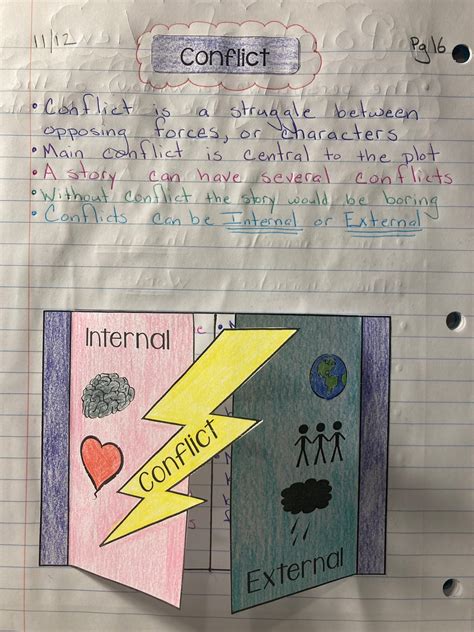 11/12
Conflict
Pg 16
• Conflict is a struggle between
opposing forces, or characters
• Main conflict is central to the plot
• A story can have several conflicts
• Without conflict the story would be boring
• Conflicts can be Internal or External
Internal
Conflict
External